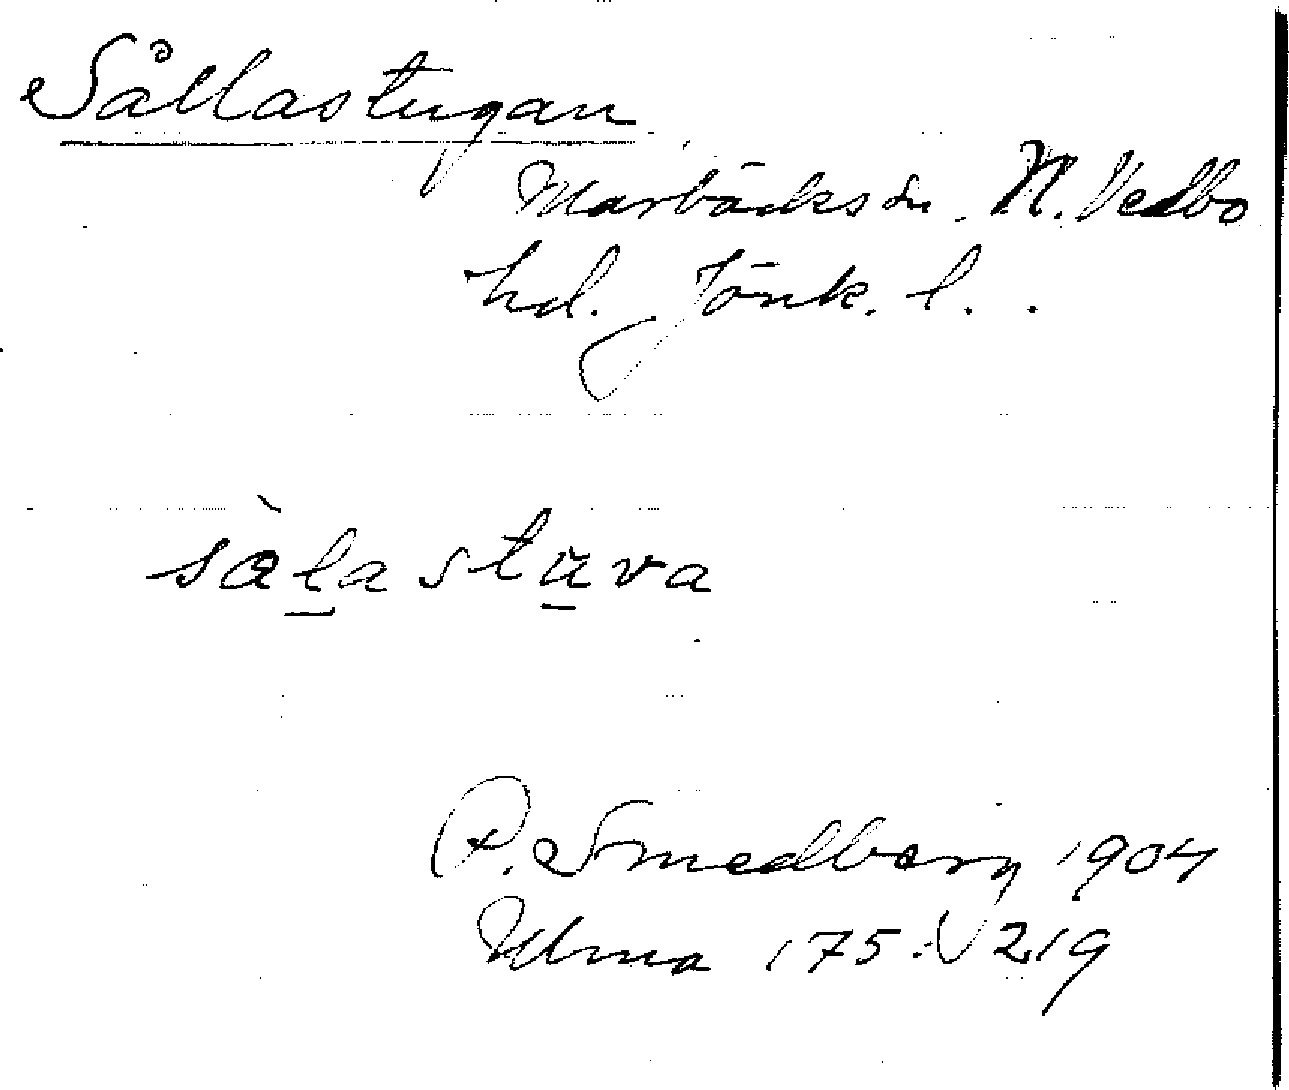 Sållastugan
Marbäcks sn. N. Vedbo
hd. Jönk. l.
sàl̲astu̲va
P. Smedberg 1904
Ulma 175: 219